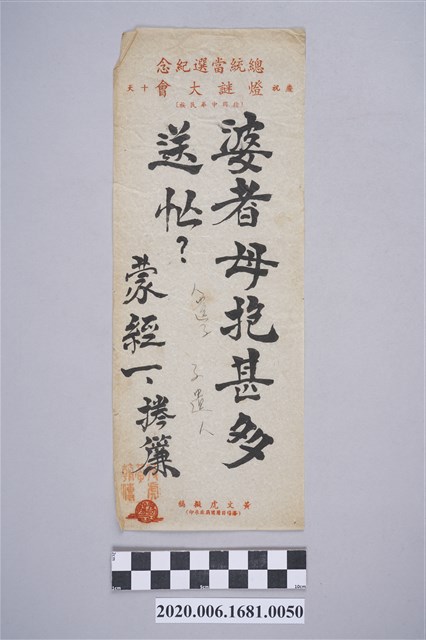 總統當選紀念
慶祝燈謎大會十天
婆者母抱甚多
送帖?
蒙經一、捲簾
子遺人
黃文虎擬稿
2020.006.1681.0050